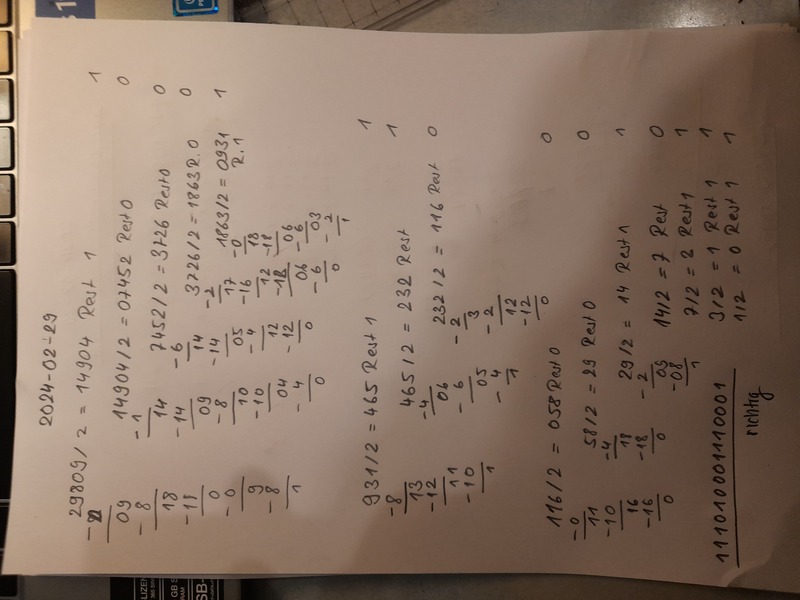 2024-02-29
29809/2 = 14904 Rest 1 1
-2
09
-8
18
-18
0
-0
9
-8
1
14904/2 = 07452 Rest 0 0
-1
14
-14
09
-8
10
-10
04
-4
0
7452/2 = 3726 Rest 0 0
-6
14
-14
05
-4
12
-12
0
3726/2 = 1863 R.0 0
-2
17
-16
12
-12
06
-6
0
1863/2 = 0931 1
R.1
-0
18
-18
06
-6
03
-2
1
931/2 = 465 Rest 1 1
-8
13
-12
11
-10
1
465/2 = 232 Rest 1
-4
06
-6
05
-4
1
232/2 = 116 Rest 0
-2
3
-2
12
-12
0
116/2 = 058 Rest 0 0
-0
11
-10
16
-16
0
58/2 = 29 Rest 0 0
-4
18
-18
0
29/2 = 14 Rest 1 1
-2
09
-08
1
14/2 = 7 Rest 0
7/2 = 3 Rest 1 1
3/2 = 1 Rest 1 1
1/2 = 0 Rest 1 1
111010001110001
richtig